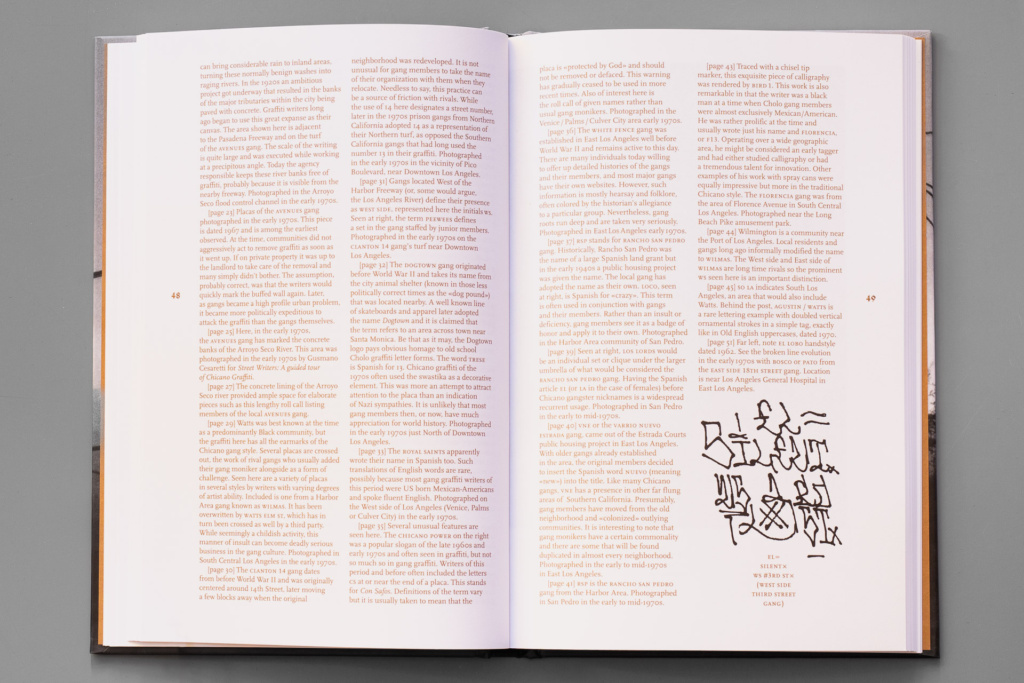 can bring considerable rain to inland areas,
turning these normally benign washes into
raging rivers. In the 1920s an ambitious
project got underway that resulted in the banks
of the major tributaries within the city being
paved with concrete. Graffiti writers long
ago began to use this great expanse as their
canvas. The area shown here is adjacent
to the Pasadena Freeway and on the turf
of the AVENUES gang. The scale of the writing
is quite large and was executed while working
at a precipitous angle. Today the agency
responsible keeps these river banks free of
graffiti, probably because it is visible from the
nearby freeway. Photographed in the Arroyo
Seco flood control channel in the early 1970s.
[page 23] Placas of the AVENUES gang
photographed in the early 1970s. This piece
is dared 1967 and is among the earliest
observed. At the time, communities did not
aggressively act to remove graffiti as soon as
it went up. If on private property it was up to
the landlord to take care of the removal and
many simply didn't bother. The assumption,
probably correct, was that the writers would
quickly mark the buffed wall again. Later,
as gangs became a high profile urban problem,
it became more politically expeditious to
attack the graffiti than the gangs themselves.
[page 25] Here, in the early 1970s,
the AVENUES gang has marked the concrete
banks of the Arroyo Seco River. This area was
photographed in the early 1970s by Gusmano
Cesaretti for Street Writers: A guided tour
of Chicano Graffiti.
[page 27] The concrete lining of the Arroyo
Seco river provided ample space for elaborate
pieces such as this lengthy roll call listing
members of the local AVENUES gang.
[page 29] Watts was best known at the time
as a predominantly Black community, but
the graffiti here has all the earmarks of the
Chicano gang style. Several placas are crossed
out, the work of rival gangs who usually added
their gang moniker alongside as a form of
challenge. Seen here are a variety of placas
in several styles by writers with varying degrees
of artist ability. Included is one from a Harbor
Area gang known as WILMAS. It has been
overwritten by WATTS ELM ST. which has in
turn been crossed as well by a third party.
While seemingly a childish activity, this
manner of insult can become deadly serious
business in the gang culture. Photographed in
South Central Los Angeles in the early 1970s.
[page 30] The CLANTON 14 gang dates
from before World War II and was originally
centered around 14th Street, later moving
a few blocks away when the original
48
neighborhood was redeveloped. It is not
unusual for gang members to take the name
of their organization with them when they
relocate. Needless to say, this practice can
be a source of friction with rivals. While
the use of 14 here designates a street number,
later in the 1970s prison gangs from Northern
California adopted 14 as a representation of
their Northern turf, as opposed the Southern
California gangs that had long used the
number 13 in their graffiti. Photographed
in the early 1970s in the vicinity of Pico
Boulevard, near Downtown Los Angeles.
[page 31] Gangs located West of the
Harbor Freeway (or, some would argue,
the Los Angeles River) define their presence
as WEST SIDE, represented here the initials WS.
Seen at right, the term PEEWEES defines
a set in the gang staffed by junior members.
Photographed in the early 1970s on the
CLANTON 14 gang's turf near Downtown
Los Angeles.
[page 32] The DOGTOWN gang originated
before World War II and takes its name from
the city animal shelter (known in those less
politically correct times as the «dog pound»)
that was located nearby. A well known line
of skateboards and apparel later adopted
the name Dogtown and it is claimed that
the term refers to an area across town near
Santa Monica. Be that as it may, the Dogtown
logo pays obvious homage to old school
Cholo graffiti letter forms. The word TRESA
is Spanish for 13. Chicano graffiti of the
1970s often used the swastika as a decorative
element. This was more an attempt to attract
attention to the placa than an indication
of Nazi sympathies. It is unlikely that most
gang members then, or now, have much
appreciation for world history. Photographed
in the early 1970s just North of Downtown
Los Angeles.
[page 33] The ROYAL SAINTS apparently
wrote their name in Spanish too. Such
translations of English words are rare,
possibly because most gang graffiti writers of
this period were US born Mexican-Americans
and spoke fluent English. Photographed on
the West side of Los Angeles (Venice, Palms
or Culver City) in the early 1970s.
[page 35] Several unusual features are
seen here. The CHICANO POWER on the right
was a popular slogan of the late 1960s and
early 1970s and often seen in graffiti, but not
so much so in gang graffiti. Writers of this
period and before often included the letters
CS at or near the end of a placa. This stands
for Con Safos. Definitions of the term vary
but it is usually taken to mean that the
placa is «protected by God» and should
not be removed or defaced. This warning
has gradually ceased to be used in more
recent times. Also of interest here is
the roll call of given names rather than
usual gang monikers. Photographed in the
Venice / Palms / Culver City area early 1970s.
[page 36] The WHITE FENCE gang was
established in East Los Angeles well before
World War II and remains active to this day.
There are many individuals today willing
to offer up detailed histories of the gangs
and their members, and most major gangs
have their own websites. However, such
information is mostly hearsay and folklore,
often colored by the historian's allegiance
to a particular group. Nevertheless, gang
roots run deep and are taken very seriously.
Photographed in East Los Angeles early 1970s.
[page 37] RSP stands for RANCHO SAN PEDRO
gang. Historically, Rancho San Pedro was
the name of a large Spanish land grant but
in the early 1940s a public housing project
was given the name. The local gang has
adopted the name as their own. LOCO, seen
at right, is Spanish for «crazy». This term
is often used in conjunction with gangs
and their members. Rather than an insult or
deficiency, gang members see it as a badge of
honor and apply it to their own. Photographed
in the Harbor Area community of San Pedro.
[page 39] Seen at right, LOS LOBOS would
be an individual set or clique under the larger
umbrella of what would be considered the
RANCHO SAN PEDRO gang. Having the Spanish
article EL (or LA in the case of females) before
Chicano gangster nicknames is a widespread
recurrent usage. Photographed in San Pedro
in the early to mid-1970s.
[page 40] VNE or the VARRIO NUEVO
ESTRADA gang, came out of the Estrada Courts
public housing project in East Los Angeles.
With older gangs already established
in the area, the original members decided
to insert the Spanish word NUEVO (meaning
«new») into the title. Like many Chicano
gangs, VNE has a presence in other far flung
areas of Southern California. Presumably,
gang members have moved from the old
neighborhood and «colonized» outlying
communities. It is interesting to note that
gang monikers have a certain commonality
and there are some that will be found
duplicated in almost every neighborhood.
Photographed in the early to mid-1970s
in East Los Angeles.
[page 41] RSP is the RANCHO SAN PEDRO
gang from the Harbor Area. Photographed
in San Pedro in the early to mid-1970s.
[page 43] Traced with a chisel tip
marker, this exquisite piece of calligraphy
was rendered by BIRD I. This work is also
remarkable in that the writer was a black
man at a time when Cholo gang members
were almost exclusively Mexican/American.
He was rather prolific at the time and
usually wrote just his name and FLORENCIA,
or F13. Operating over a wide geographic
area, he might be considered an early tagger
and had either studied calligraphy or had
a tremendous talent for innovation. Other
examples of his work with spray cans were
equally impressive but more in the traditional
Chicano style. The FLORENCIA gang was from
the area of Florence Avenue in South Central
Los Angeles. Photographed near the Long
Beach Pike amusement park.
[page 44] Wilmington is a community near
the Port of Los Angeles. Local residents and
gangs long ago informally modified the name
to WILMAS. The West side and East side of
WILMAS are long time rivals so the prominent
WS seen here is an important distinction.
[page 45] SO LA indicates South Los
Angeles, an area that would also include
Watts. Behind the post, AGUSTIN / WATTS is
a rare lettering example with doubled vertical
ornamental strokes in a simple tag, exactly
like in Old English uppercases, dated 1970.
[page 51] Far left, note EL LOBO handstyle
dated 1962. See the broken line evolution
in the early 1970s with BOSCO or PATO from
the EAST SIDE 18TH STREET gang. Location
is near Los Angeles General Hospital in
East Los Angeles.
49
EL=
SILENT×
WS #3RD ST×
[WEST SIDE
THIRD STREET
GANG]